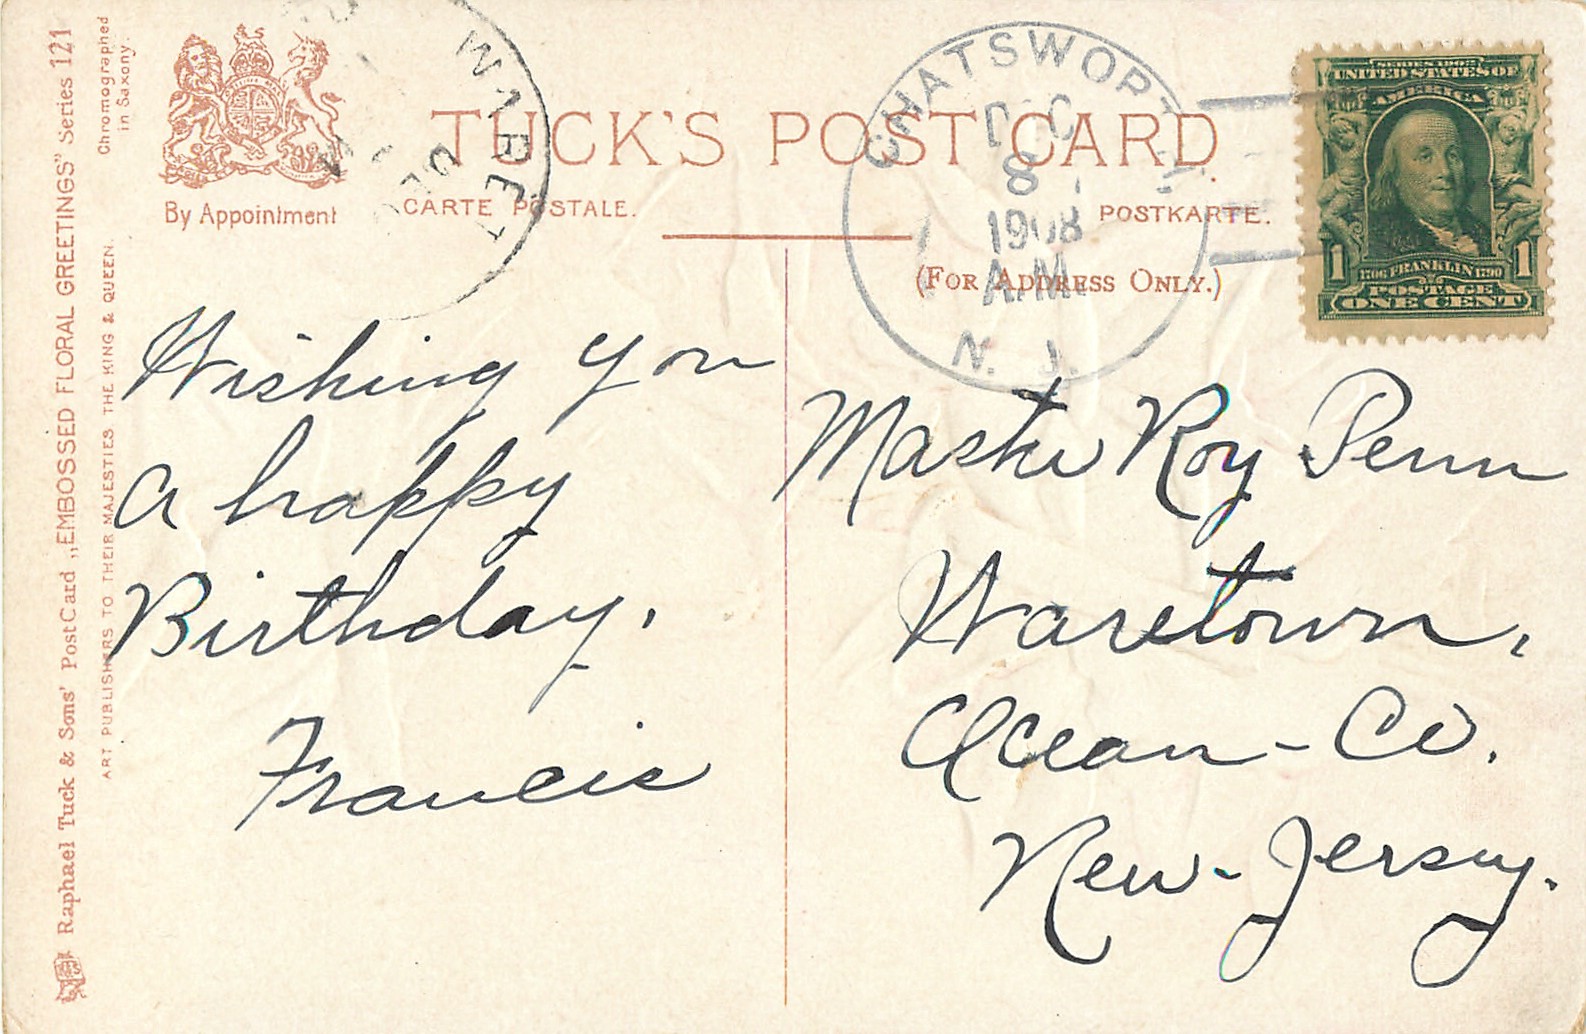 Raphael Tuck & Sons' Post Card „EMBOSSED FLORAL GREETINGS" Series 121
ART PUBLISHERS TO THEIR MAJESTIES THE KING & QUEEN.
Chromographed
in Saxony.
By Appointment
TUCK'S POST CARD.
CARTE POSTALE.
POSTKARTE.
(FOR ADDRESS ONLY.)
CHATSWORTH
DEC
8
1908
A.M.
N. J.
SERIES 1902
UNITED STATES OF
AMERICA
1706 FRANKLIN 1790
1 1
POSTAGE
ONE CENT
Wishing you
a happy
Birthday.
Francis
Master Roy Penn
Waretown,
Ocean-Co.
New-Jersey.